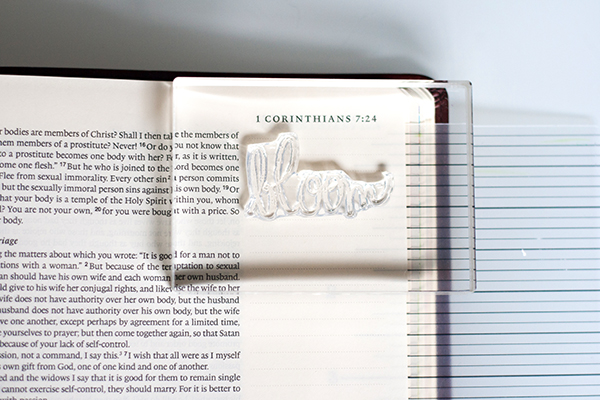 1 CORINTHIANS 7:24
r bodies are members of Christ? Shall I then take the members of
hem members of a prostitute? Never! 16 Or do you not know that
to a prostitute becomes one body with her? For, as it is written,
ome one flesh.” 17 But he who is joined to the Lord becomes one
Flee from sexual immorality. Every other sin a person commits
but the sexually immoral person sins against his own body. 19 Or
hat your body is a temple of the Holy Spirit within you, whom
? You are not your own, 20 for you were bought with a price. So
body.
riage
g the matters about which you wrote: “It is good for a man not to
ations with a woman.” 2 But because of the temptation to sexual
an should have his own wife and each woman her own husband.
ld give to his wife her conjugal rights, and likewise the wife to her
wife does not have authority over her own body, but the husband
usband does not have authority over his own body, but the wife
ve one another, except perhaps by agreement for a limited time,
e yourselves to prayer; but then come together again, so that Satan
because of your lack of self-control.
ssion, not a command, I say this. 7 I wish that all were as I myself
own gift from God, one of one kind and one of another.
ed and the widows I say that it is good for them to remain single
cannot exercise self-control, they should marry. For it is better to